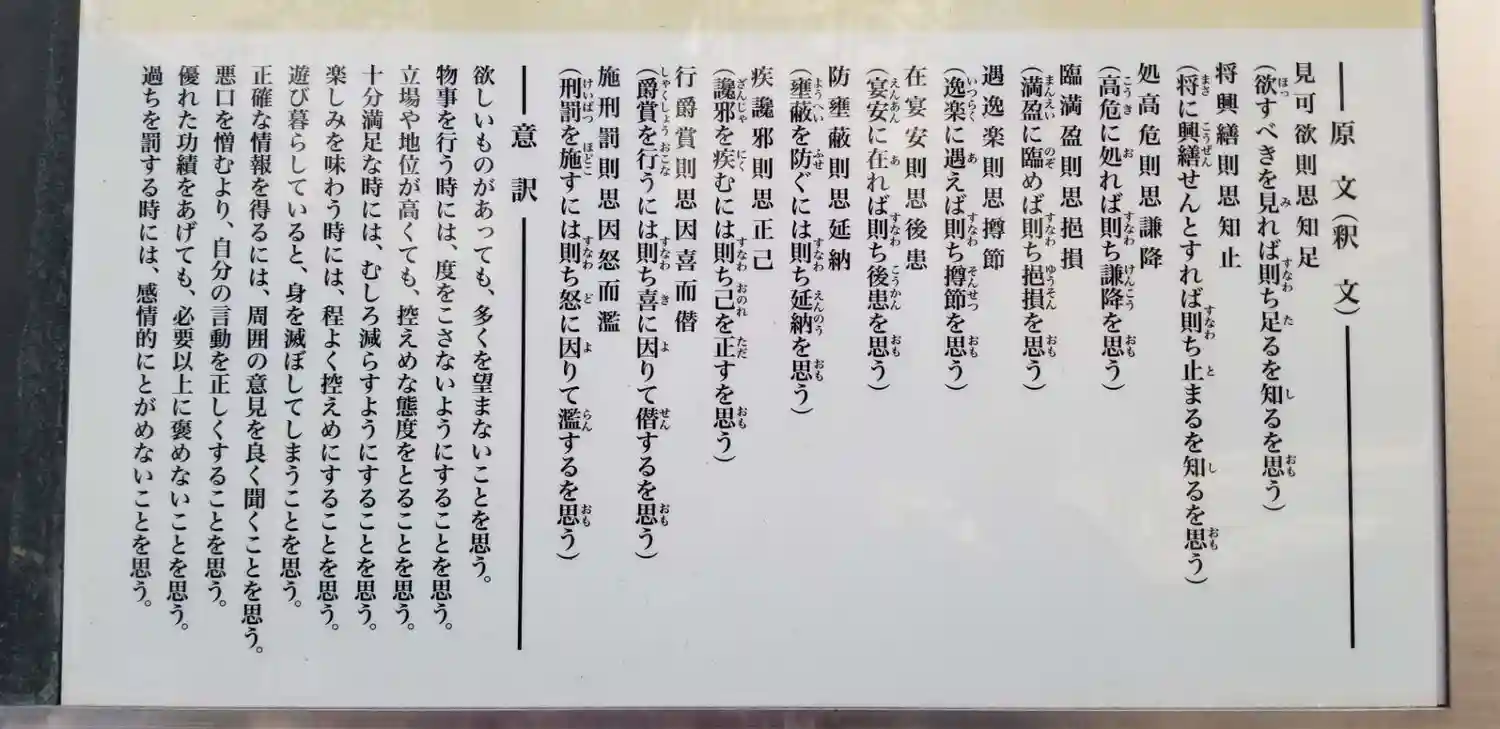 原文(釈文)
見可欲則思知足
(欲すべきを見れば則ち足るを知るを思う)
将興繕則思知止
(将に興繕せんとすれば則ち止まるを知るを思う)
処高危則思謙降
(高危に処れば則ち謙降を思う)
臨満盈則思挹損
(満盈に臨めば則ち挹損を思う)
遇逸楽則思撙節
(逸楽に遇えば則ち撙節を思う)
在宴安則思後患
(宴安に在れば則ち後患を思う)
防壅蔽則思延納
(壅蔽を防ぐには則ち延納を思う)
疾讒邪則思正己
(讒邪を疾むには則ち己を正すを思う)
行爵賞則思因喜而僭
(爵賞を行うには則ち喜に因りて僭するを思う)
施刑罰則思因怒而濫
(刑罰を施すには則ち怒に因りて濫するを思う)
意訳
欲しいものがあっても、多くを望まないことを思う。
物事を行う時には、度をこさないようにすることを思う。
立場や地位が高くても、控えめな態度をとることを思う。
十分満足な時には、むしろ減らすようにすることを思う。
楽しみを味わう時には、程よく控えめにすることを思う。
遊び暮らしていると、身を滅ぼしてしまうことを思う。
正確な情報を得るには、周囲の意見を良く聞くことを思う。
悪口を憎むより、自分の言動を正しくすることを思う。
優れた功績をあげても、必要以上に褒めないことを思う。
過ちを罰する時には、感情的にとがめないことを思う。